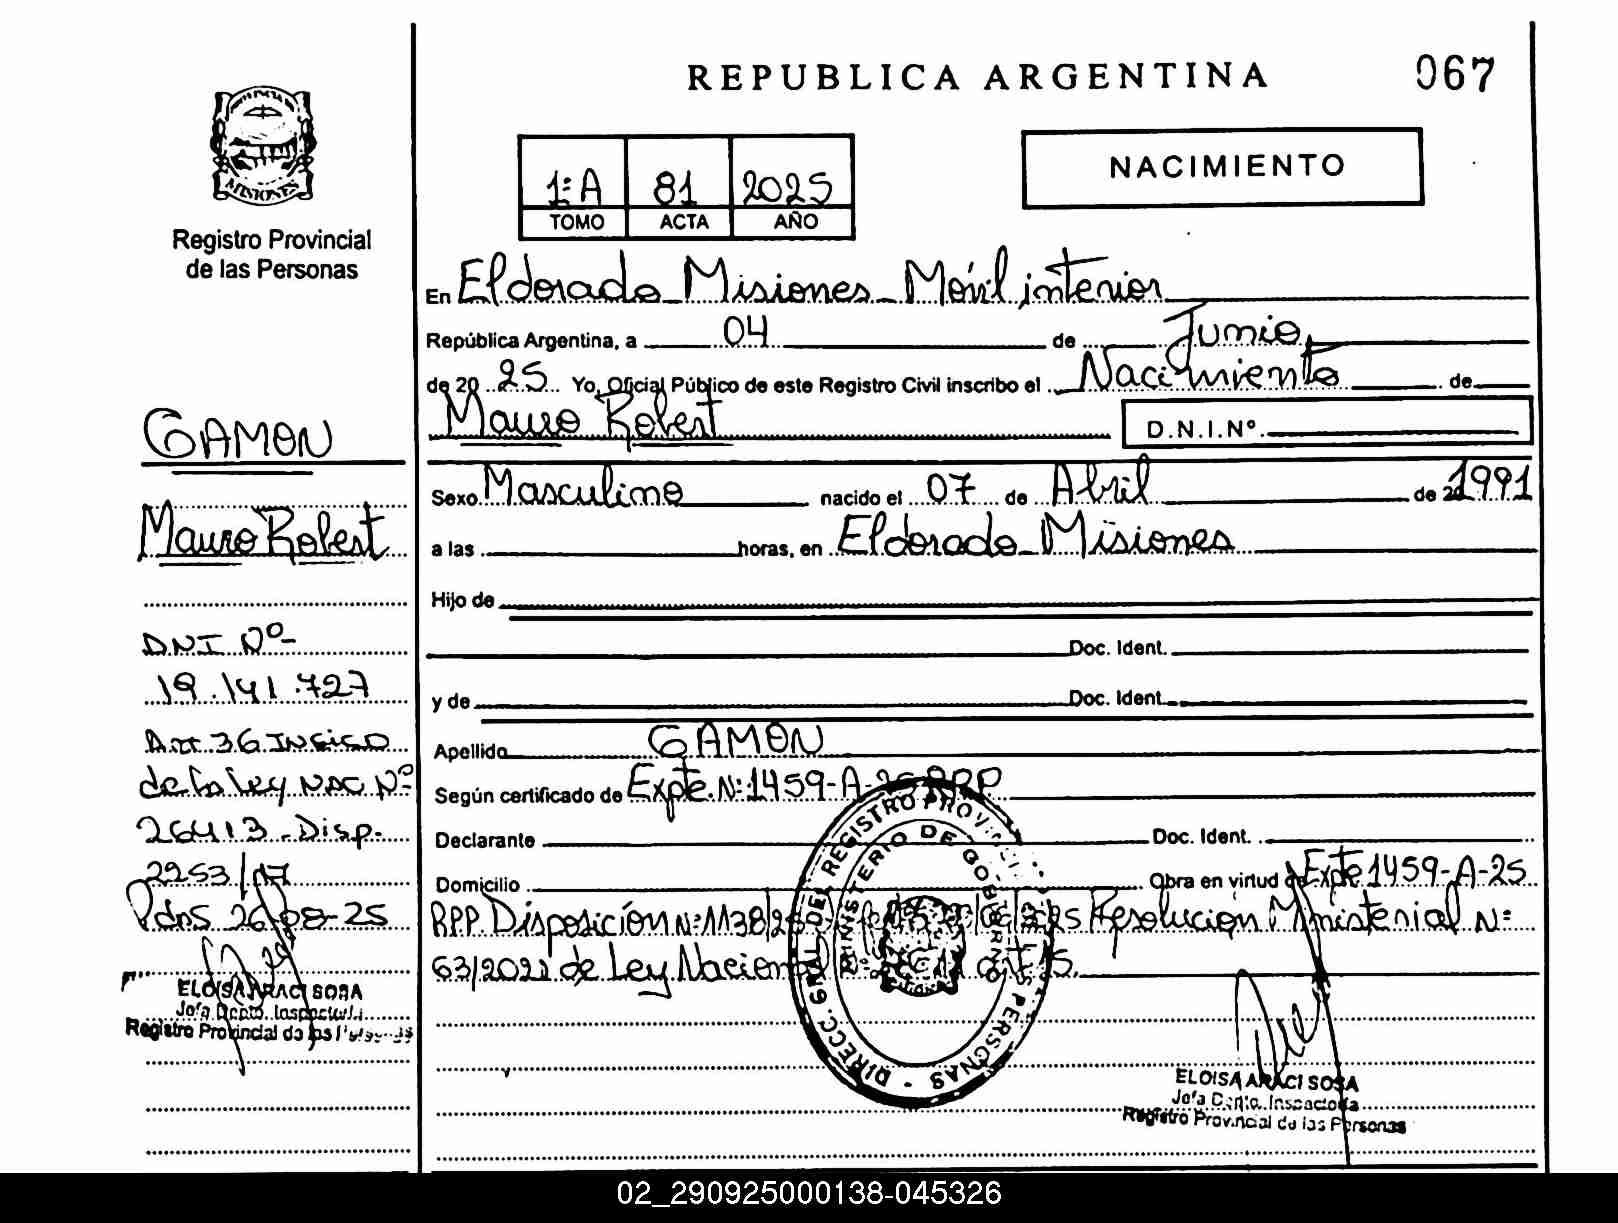 REPUBLICA ARGENTINA
067
MISIONES
Registro Provincial
de las Personas
1ºA 81 2025
TOMO ACTA AÑO
NACIMIENTO
En Eldorado Misiones Móvil interior
República Argentina, a 04 de Junio
de 20 25 Yo, Oficial Público de este Registro Civil inscribo el Nacimiento de
Mauro Robert
D.N.I.Nº.
Sexo Masculino nacido el 07 de Abril de 1991
a las horas, en Eldorado Misiones
Hijo de
Doc. Ident.
y de Doc. Ident.
Apellido GAMON
Según certificado de Expte. Nº 1459-A-25 RPP
Declarante Doc. Ident.
Domicilio Obra en virtud de Expte 1459-A-25
RPP. Disposición Nº 1138/25 Resolución Ministerial Nº
63/2021 de Ley Nacional
DIRECC. GRAL. DEL REGISTRO PROVINCIAL DE LAS PERSONAS
MINISTERIO DE GOBIERNO
ELOISA ARACI SOSA
Jefa Depto. Inspectoría
Registro Provincial de las Personas
GAMON
Mauro Robert
DNI Nº
19.141.727
Art 36 Inciso
de la Ley Nac Nº
26413 - Disp.
2253/17
Pdas 26-08-25
ELOISA ARACI SOSA
Jefa Depto. Inspectoría
Registro Provincial de las Personas
02_290925000138-045326